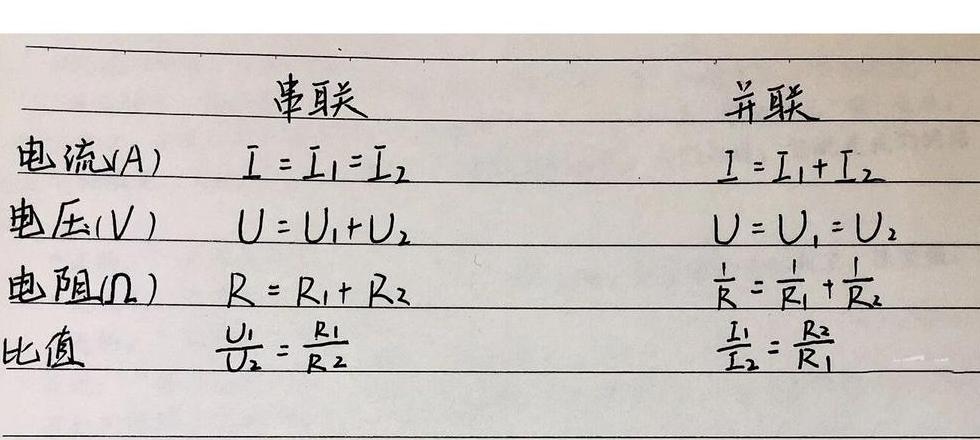 串联 并联
电流(A) I = I₁ = I₂ I = I₁ + I₂
电压(V) U = U₁ + U₂ U = U₁ = U₂
电阻(Ω) R = R₁ + R₂ 1/R = 1/R₁ + 1/R₂
比值 U₁/U₂ = R₁/R₂ I₁/I₂ = R₂/R₁